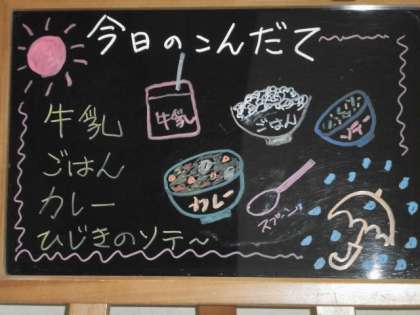 今日のこんだて
牛乳
ごはん
カレー
ひじきのソテ～
牛乳
ごはん
ソテー
カレー
スプーン